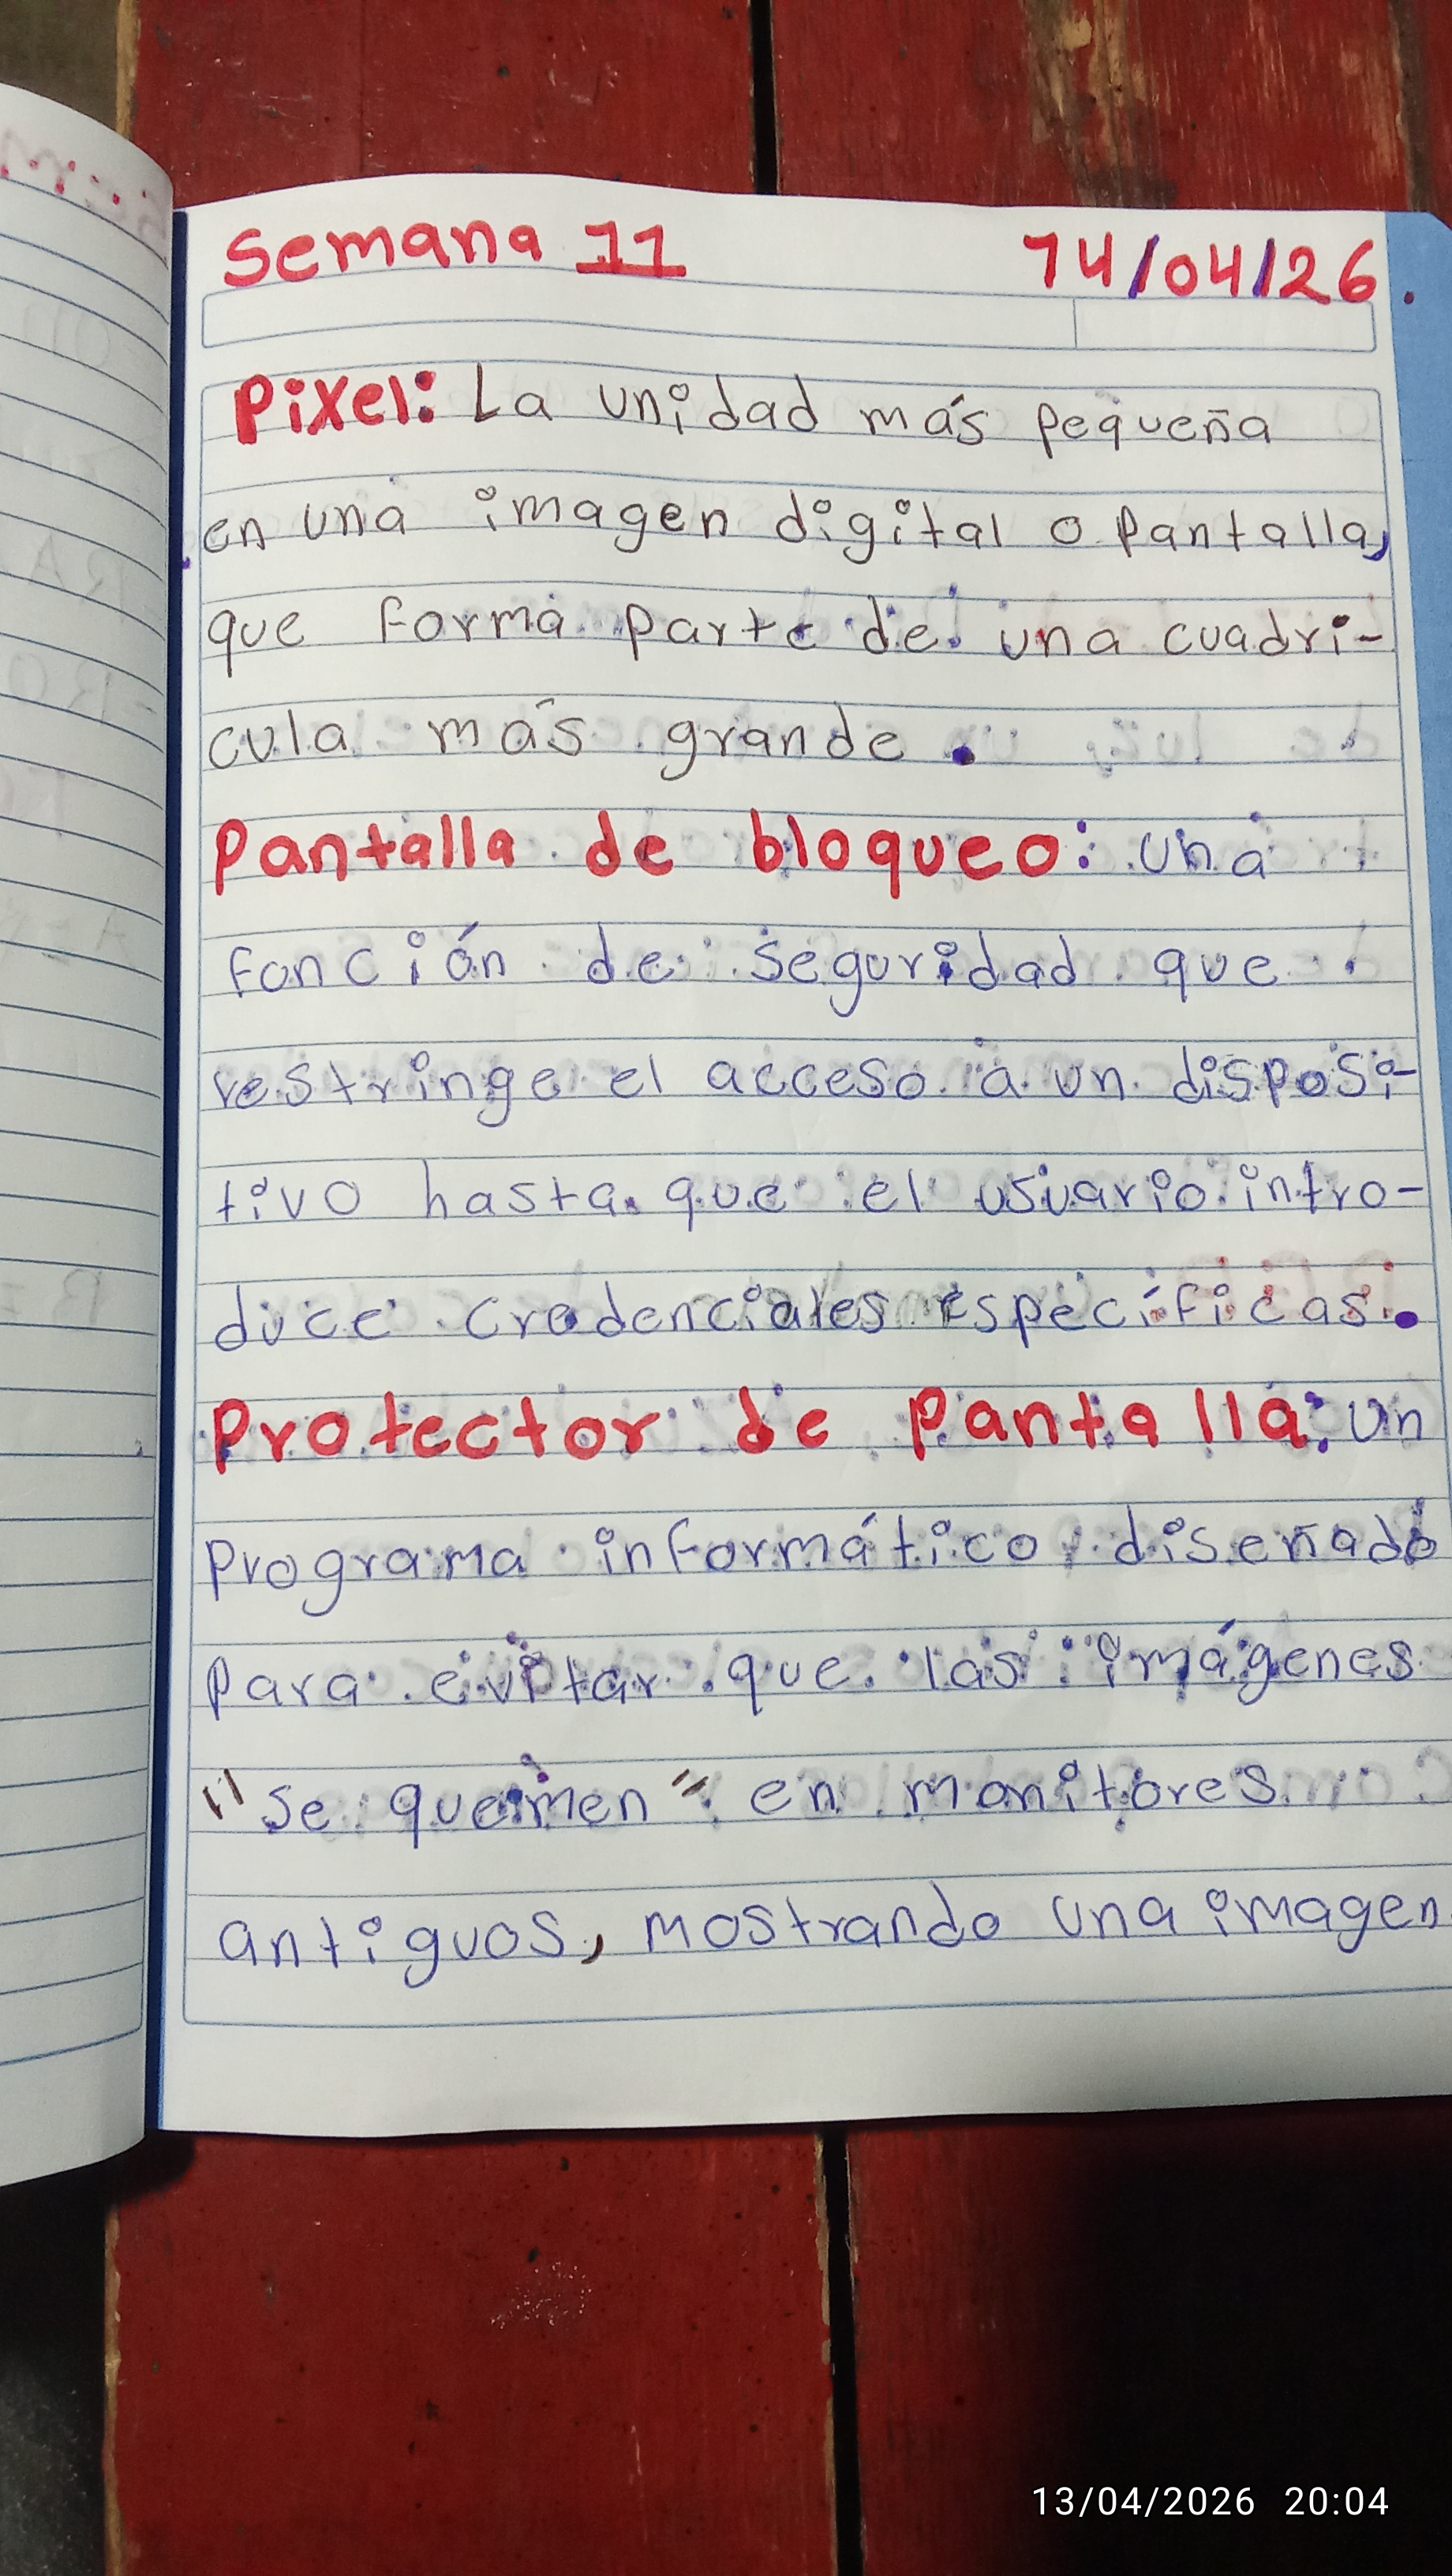 Semana 11 14/04/26.
Pixel: La unidad más pequeña
en una imagen digital o Pantalla,
que forma parte de una cuadri-
cula más grande.
Pantalla de bloqueo: una
función de seguridad que
restringe el acceso a un disposi-
tivo hasta que el usuario intro-
duce credenciales específicas.
Protector de Pantalla: un
Programa informático diseñado
para evitar que las imágenes
"se quemen" en monitores
antiguos, mostrando una imagen
13/04/2026 20:04